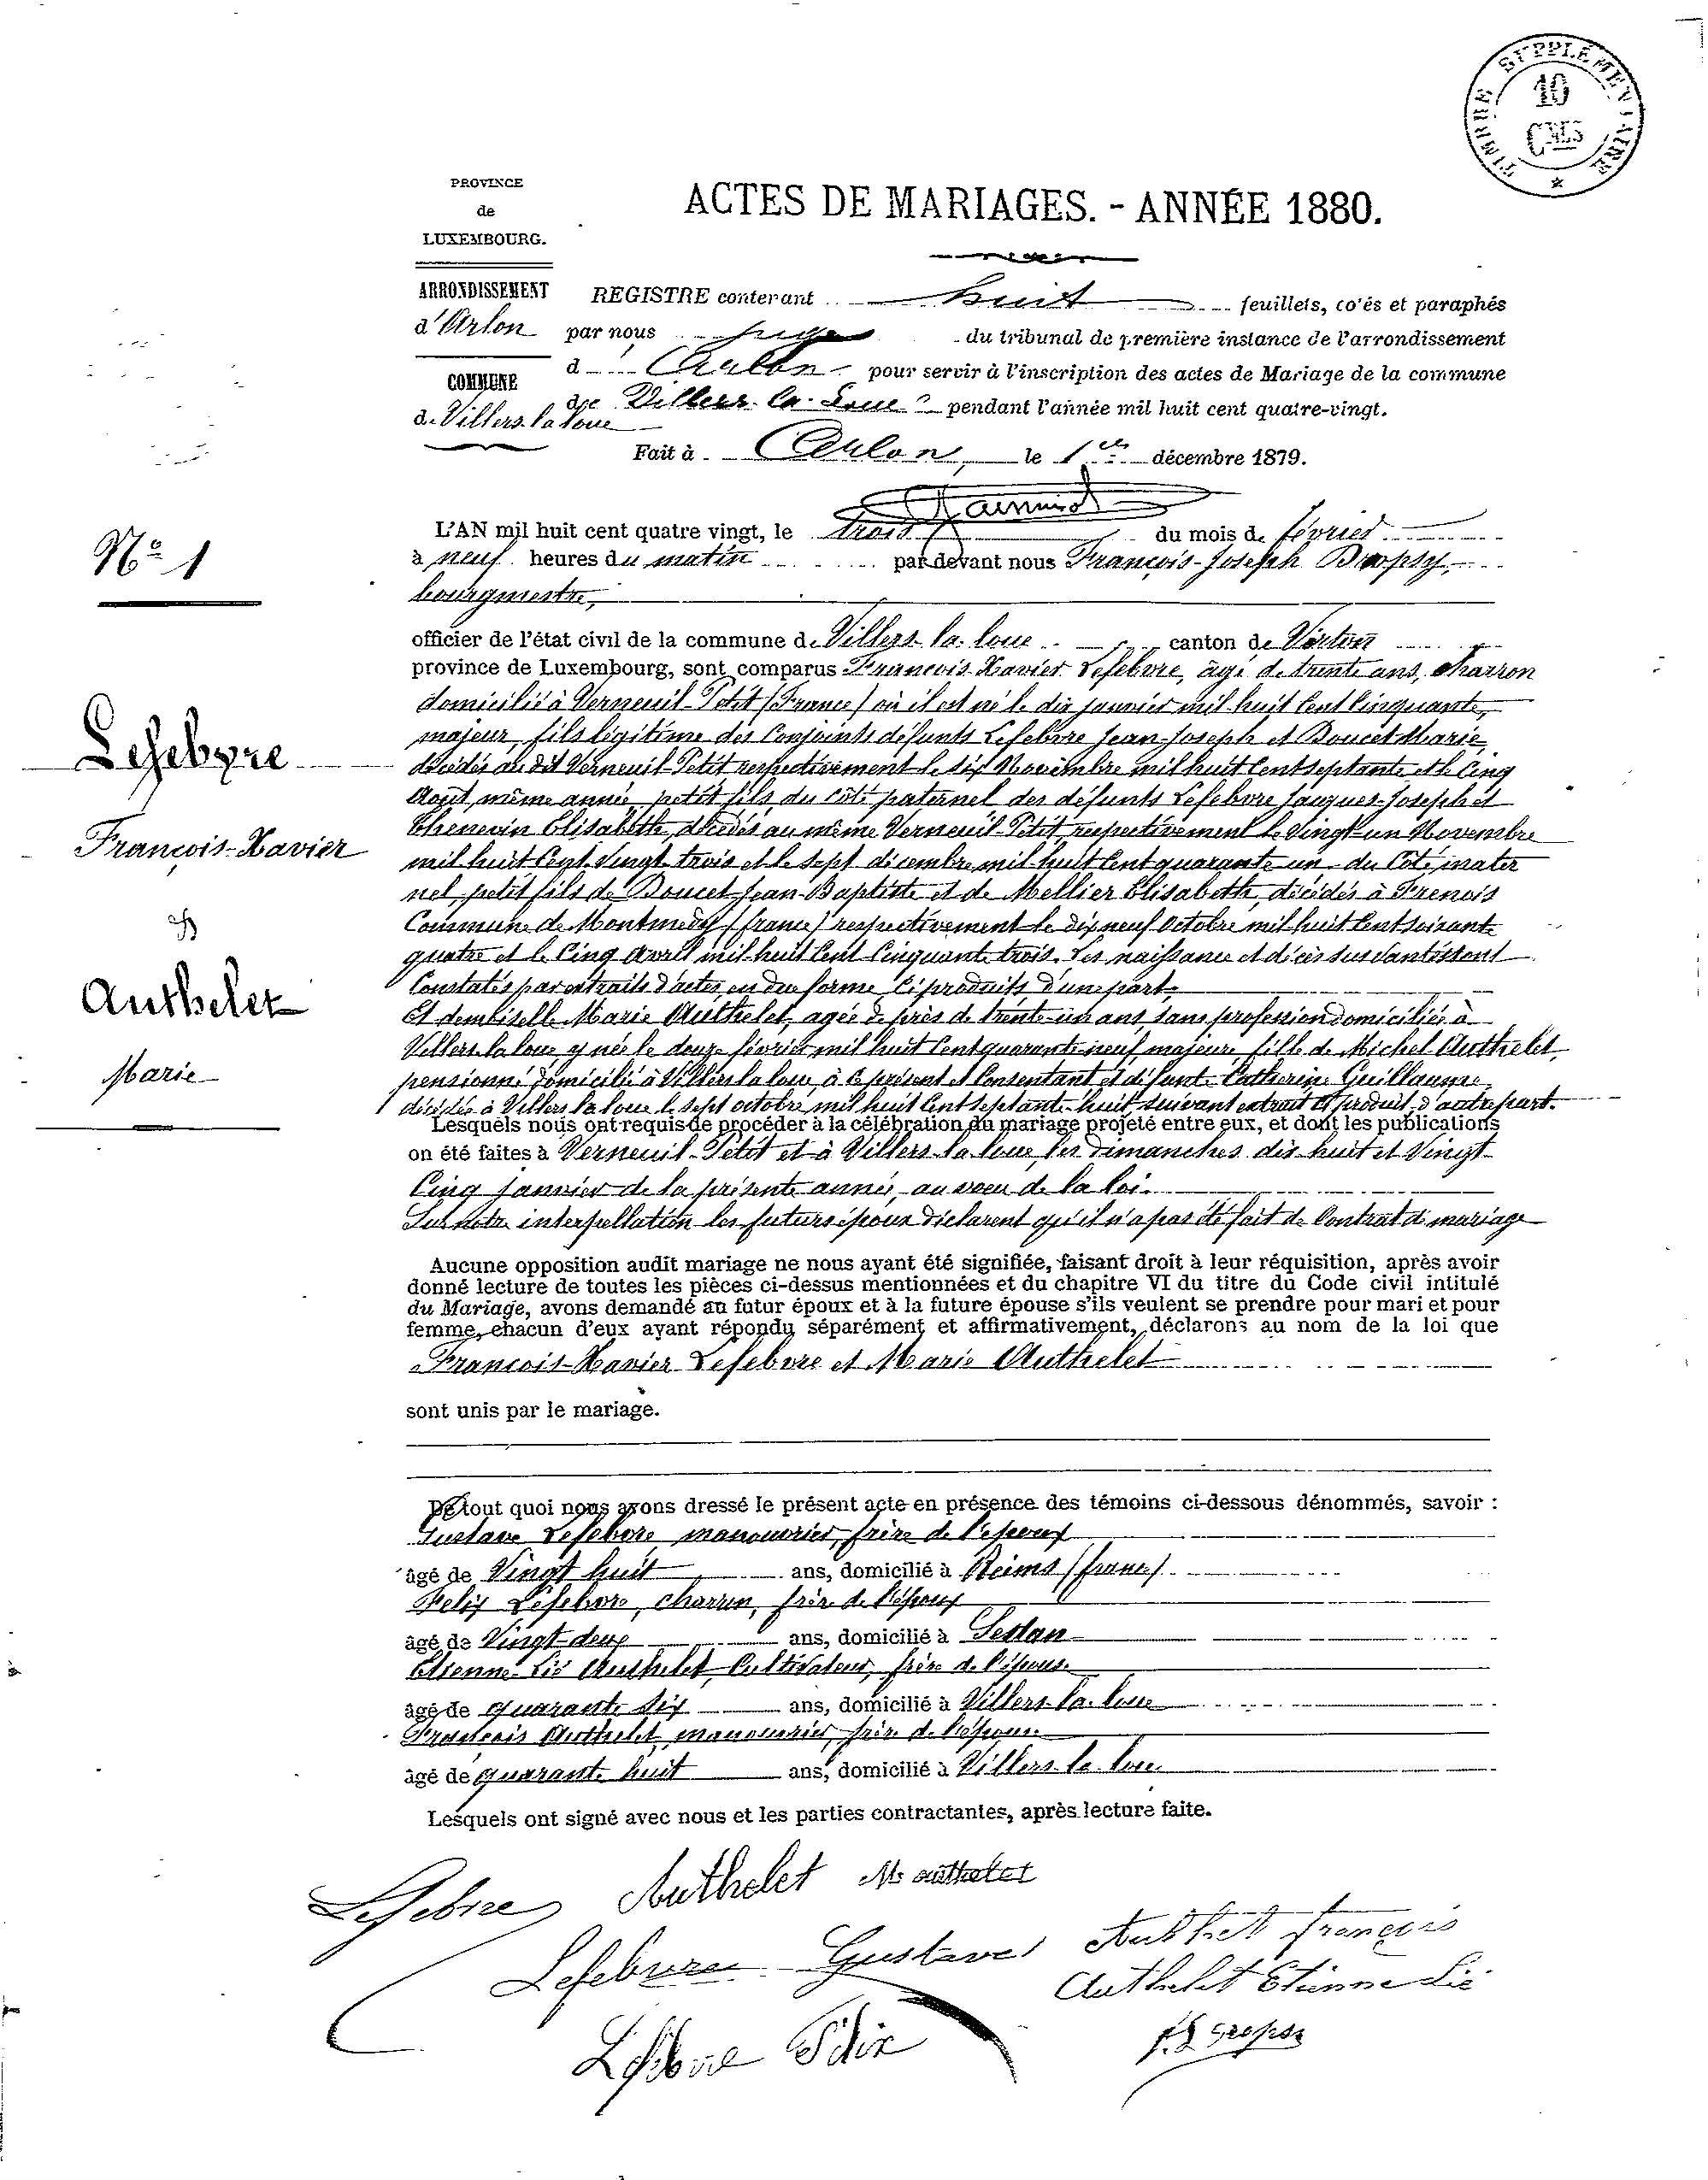 TIMBRE SUPPLÉMENTAIRE
10
CMES
PROVINCE
de
LUXEMBOURG.
ARRONDISSEMENT
d'Arlon
COMMUNE
de Villers la loue
ACTES DE MARIAGES. - ANNÉE 1880.
REGISTRE contenant huit feuillets, cotés et paraphés
par nous juge du tribunal de première instance de l'arrondissement
d'Arlon pour servir à l'inscription des actes de Mariage de la commune
de Villers-la-Loue pendant l'année mil huit cent quatre-vingt.
Fait à Arlon, le 1er décembre 1879.
N° 1
L'AN mil huit cent quatre vingt, le trois du mois de février
à neuf heures du matin par devant nous François-Joseph
bourgmestre,
officier de l'état civil de la commune de Villers-la-loue canton de Virton
province de Luxembourg, sont comparus François-Xavier Lefebvre, âgé de trente ans, charron
domicilié à Verneuil-Petit (France) où il est né le dix janvier mil huit Cent Cinquante,
majeur, fils légitime des Conjoints défunts Lefebvre Jean-Joseph et Doucet Marie
décédés au dit Verneuil-Petit respectivement le six Novembre mil huit Cent septante et le Cinq
Août même année, petit fils du côté paternel des défunts Lefebvre Jacques-Joseph et
Thenevin Elisabeth, décédés au même Verneuil-Petit respectivement le Vingt-un Novembre
mil huit Cent Vingt trois et le sept décembre mil huit Cent quarante un du Côté mater
nel petit fils de Doucet Jean-Baptiste et de Mellier Elisabeth, décédés à Frenois
Commune de Montmédy (france) respectivement le dix neuf Octobre mil huit Cent soixante
quatre et le Cinq Avril mil huit Cent Cinquante trois. Les naissance et décès susvantés sont
Constatés par extraits d'actes en due forme Ci produits d'une part,
Et demoiselle Marie Authelet, agée de près de trente-un ans, sans profession domiciliée à
Villers-la-loue y née le douze février mil huit Cent quarante-neuf majeure, fille de Michel Authelet,
pensionné domicilié à Villers la loue, à ce présent et Consentant et défunte Catherine Guillaume,
décédée à Villers la loue le sept octobre mil huit Cent septante-huit, suivant extrait Ci produit, d'autre part.
Lesquels nous ont requis de procéder à la célébration du mariage projeté entre eux, et dont les publications
on été faites à Verneuil-Petit et à Villers-la-loue, les Dimanches dix-huit et Vingt
Cinq janvier de la présente année, au voeu de la loi.
Sur notre interpellation les futurs époux déclarent qu'il n'a pas été fait de Contrat de mariage
Aucune opposition audit mariage ne nous ayant été signifiée, faisant droit à leur réquisition, après avoir
donné lecture de toutes les pièces ci-dessus mentionnées et du chapitre VI du titre du Code civil intitulé
du Mariage, avons demandé au futur époux et à la future épouse s'ils veulent se prendre pour mari et pour
femme, chacun d'eux ayant répondu séparément et affirmativement, déclarons au nom de la loi que
François-Xavier Lefebvre et Marie Authelet
sont unis par le mariage.
De tout quoi nous avons dressé le présent acte en présence des témoins ci-dessous dénommés, savoir :
Gustave Lefebvre, manouvrier, frère de l'époux
âgé de Vingt huit ans, domicilié à Reims (france)
Felix Lefebvre, charron, frère de l'époux
âgé de Vingt-deux ans, domicilié à Sedan
Etienne-Lié Authelet, Cultivateur, frère de l'épouse
âgé de quarante six ans, domicilié à Villers-la-loue
François Authelet, manouvrier, frère de l'épouse
âgé de quarante huit ans, domicilié à Villers-la-loue
Lesquels ont signé avec nous et les parties contractantes, après lecture faite.
Lefebvre
François-Xavier
&
Authelet
Marie
Lefebvre Authelet M. authelet
Lefebvre Gustave Authelet françois
Authelet Etienne Lié
Lefebvre Félix